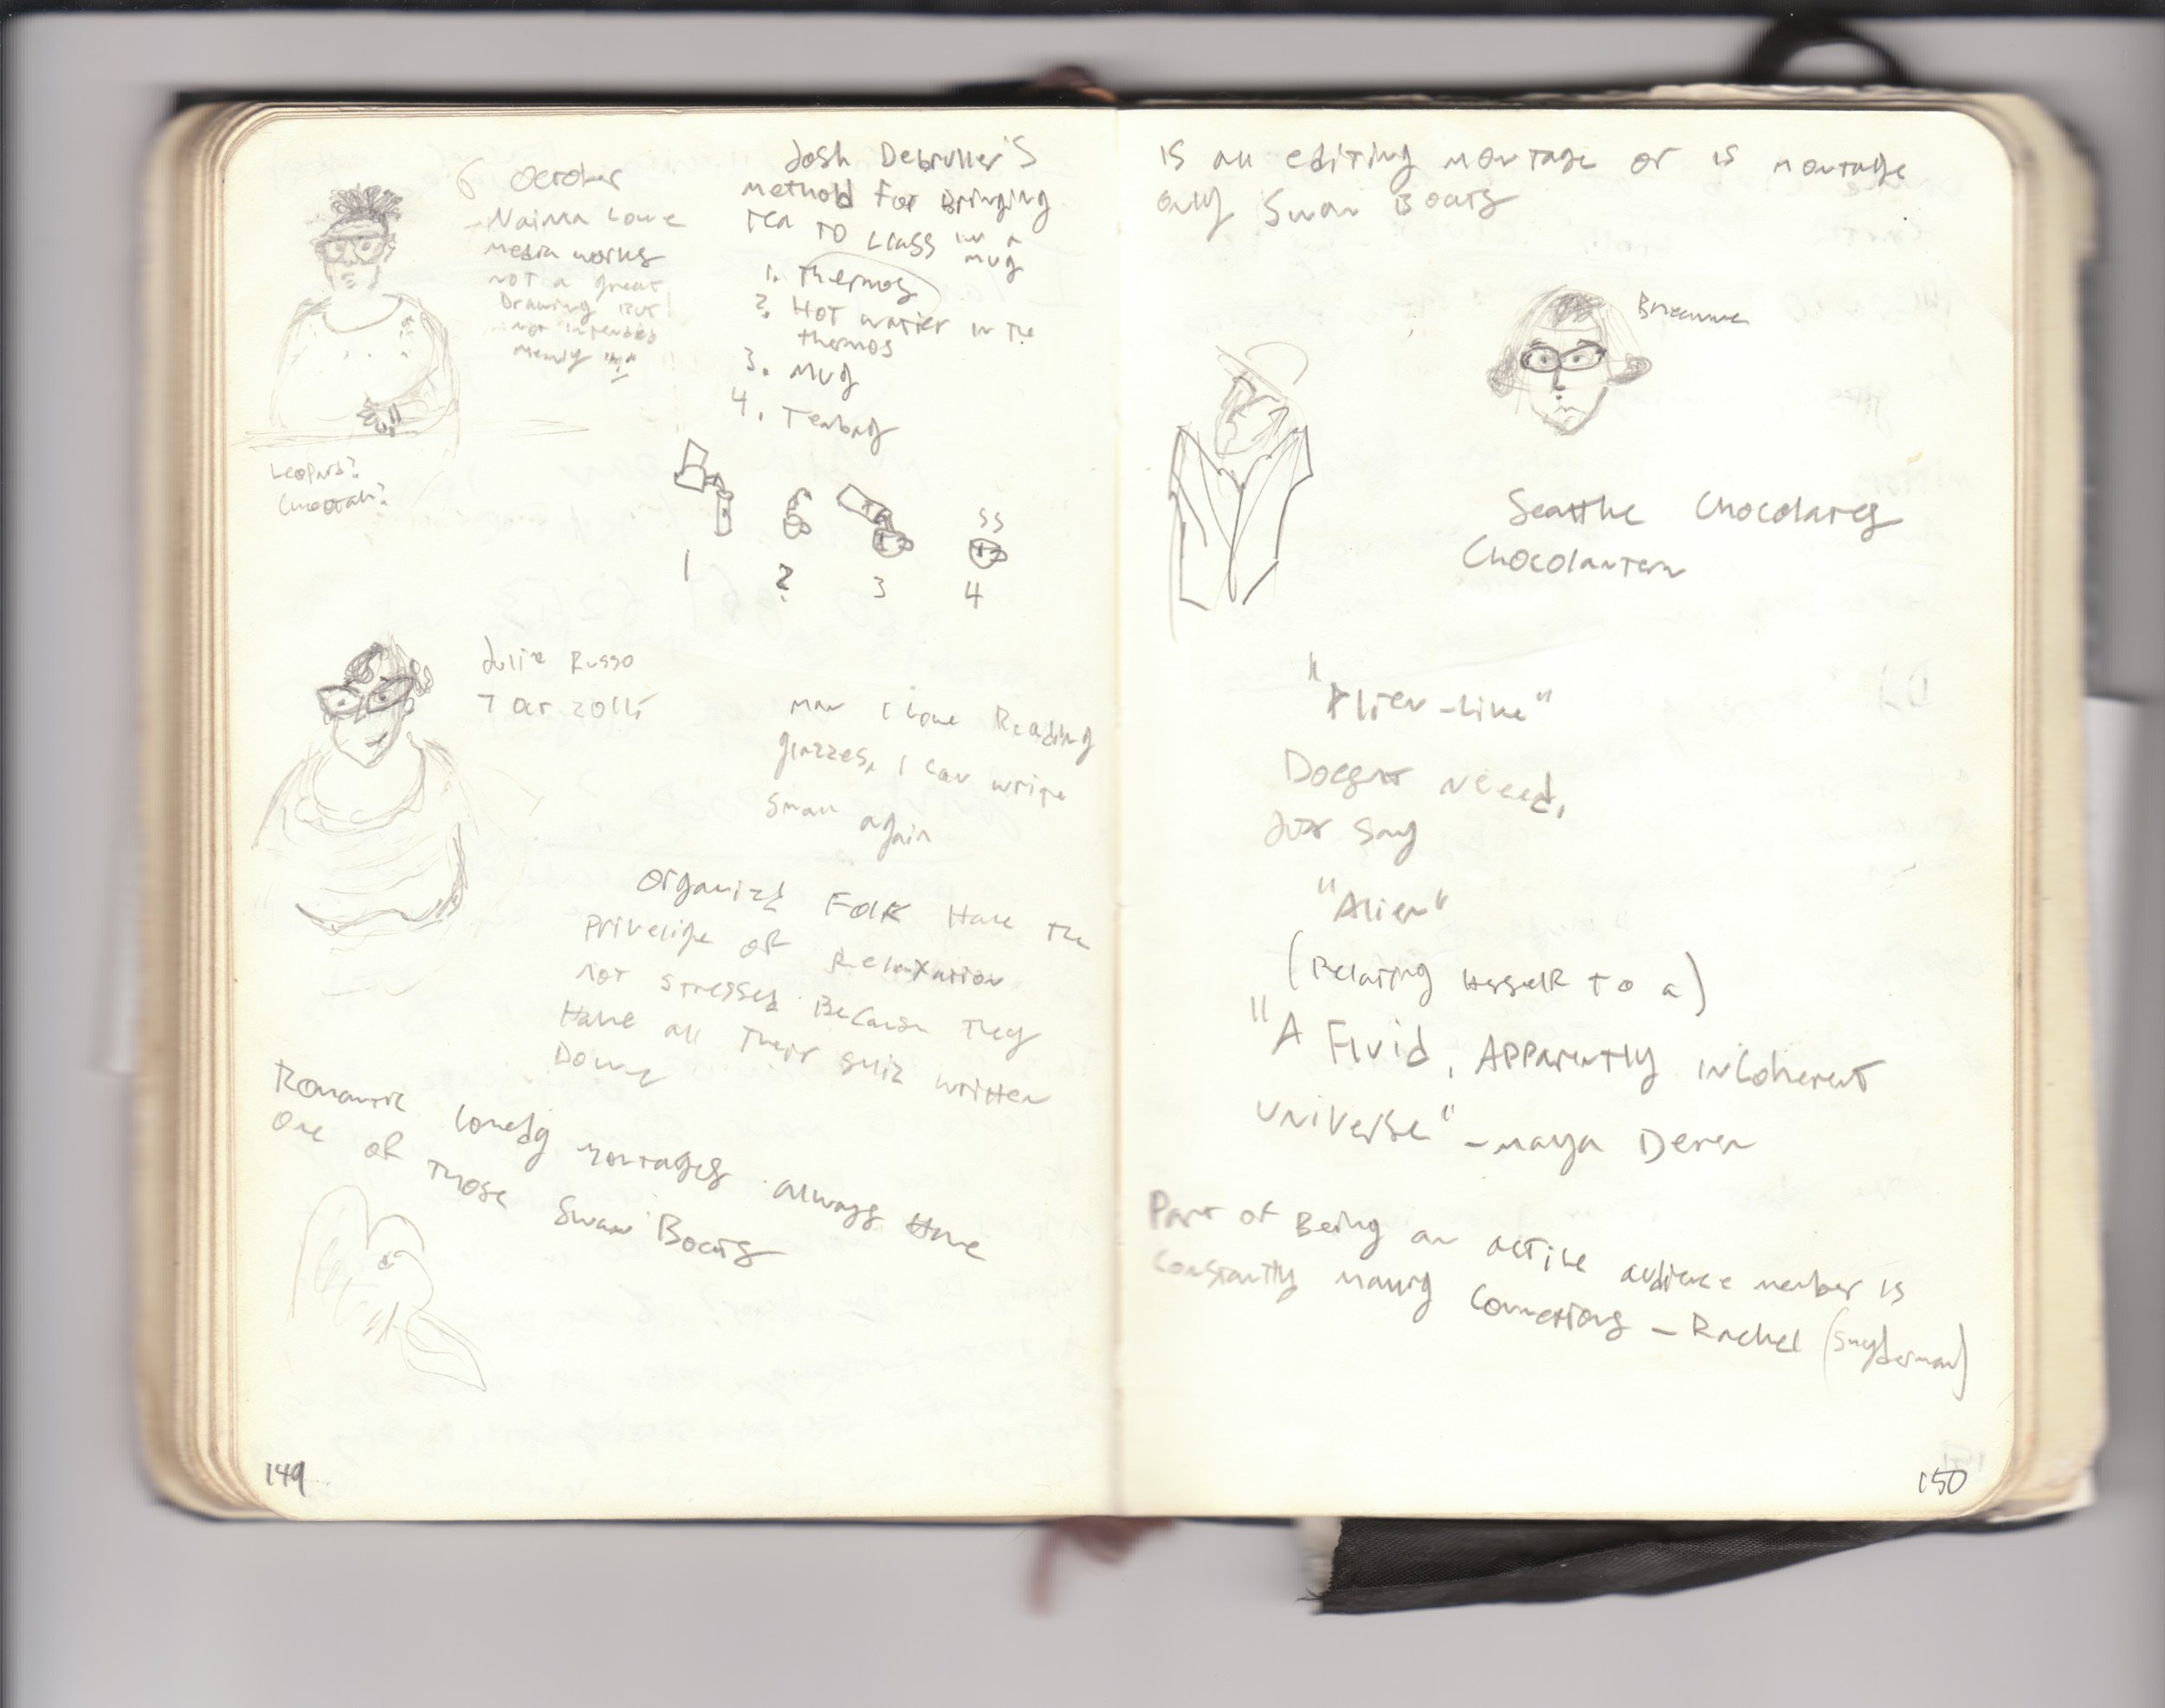 6 October
- Naima Lowe
Media works
not a great
Drawing But
not intended
meanly
Leopard?
Cheetah?
Josh Debruller's
Method For Bringing
Tea TO Class in a
mug
1. Thermos
2. Hot water in the
thermos
3. Mug
4. Teabag
1
2
3
4
Julie Russo
7 Oct 2015
man I love Reading
glazzes, I can write
small again
Organized Folk Have the
privelige of Relaxation
not stressed Because They
Have all their
written
Down
Romantic Comedy montages always Have
One of Those Swan Boats
149
is an editing montage or is montage
only Swan Boats
Brieanna
Seattle Chocolates
Chocolantern
"Alien-like"
Doesnt Need,
Just say
"Alien"
(Relating Herself to a)
"A Fluid, Apparently incoherent
universe" - maya Deren
Part of Being an active audience member is
Constantly making Connections - Rachel (Snyderman)
150